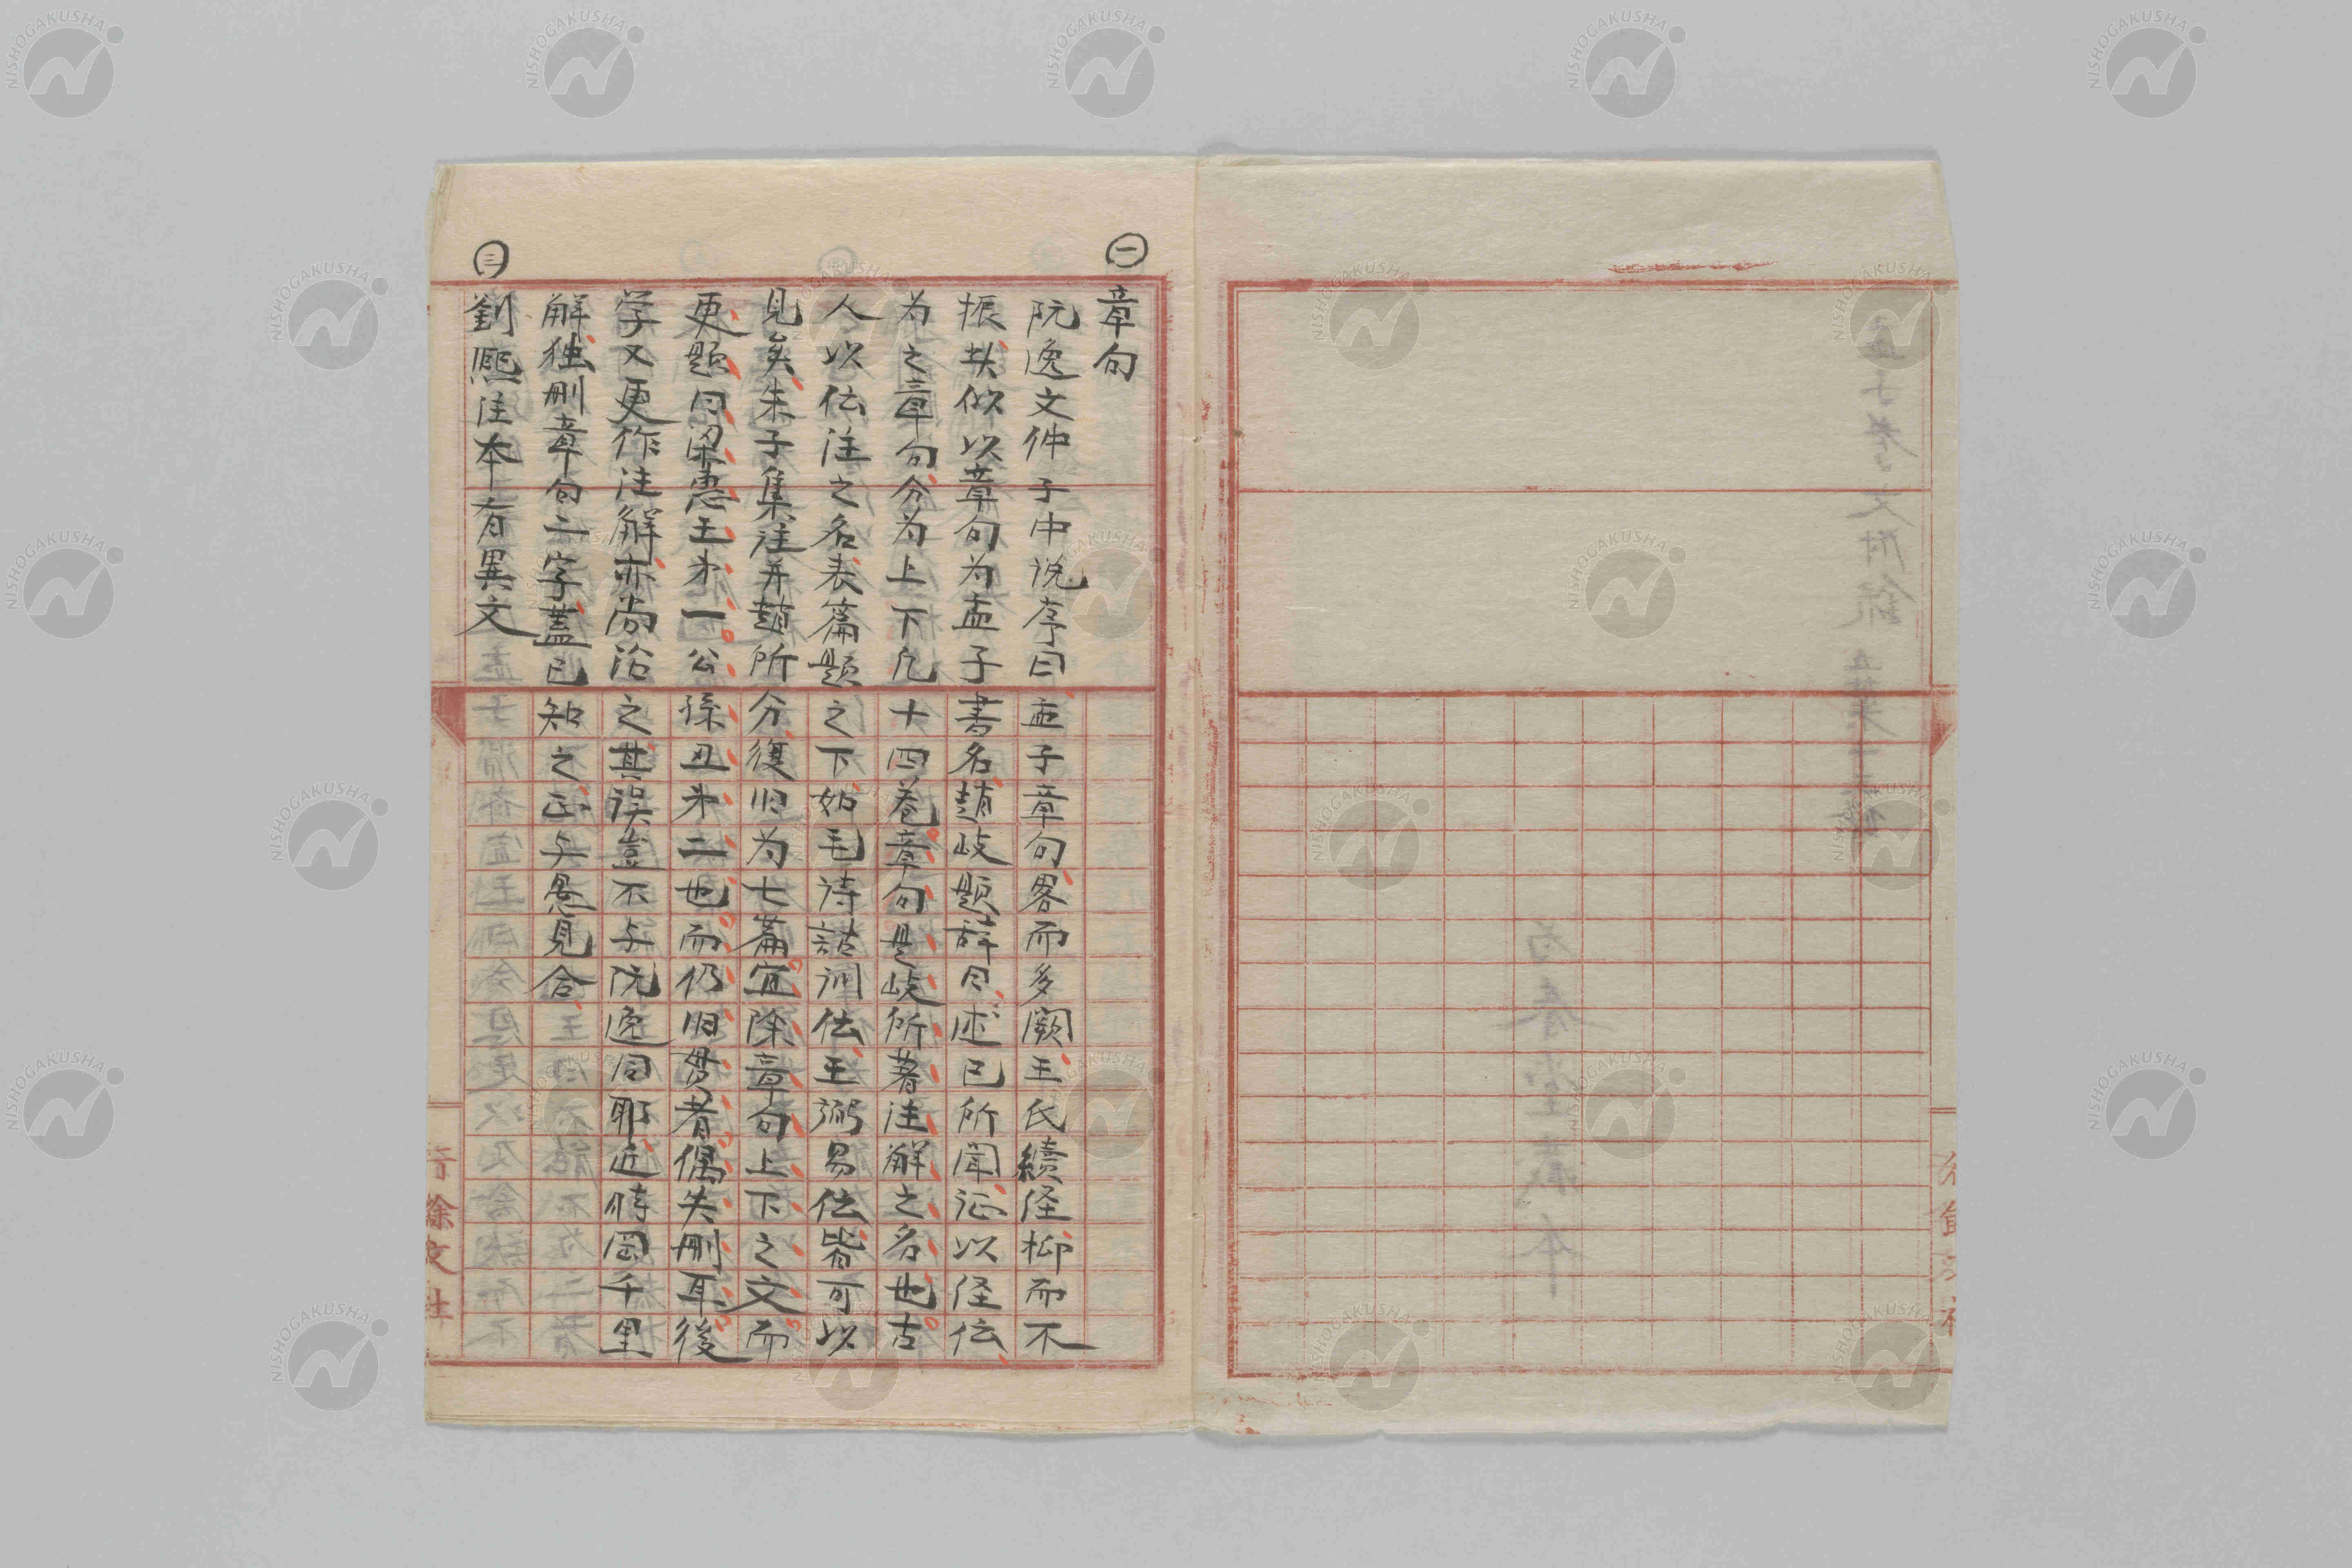 ㊀
章句
阮逸文仲子中说序曰孟子章句畧而多闕王氏續经抑而不
振扶似以章句为孟子書名趙岐題辞曰述已所聞证以经伝
为之章句分为上下凡十四巻章句是岐所著注解之名也古
人以伝注之名表篇題之下如毛诗詁训伝王弼易伝皆可以
見矣朱子集注并趙所分復旧为七篇宜除章句上下之文而
更題曰梁惠王第一公孫丑第二也而仍旧贯者偶失刪耳後
学又更作注解亦尚沿之其误豈不与阮逸同耶近時岡千里
解独刪章句二字蓋已知之正与愚見合
㊂
劉熙注本有異文